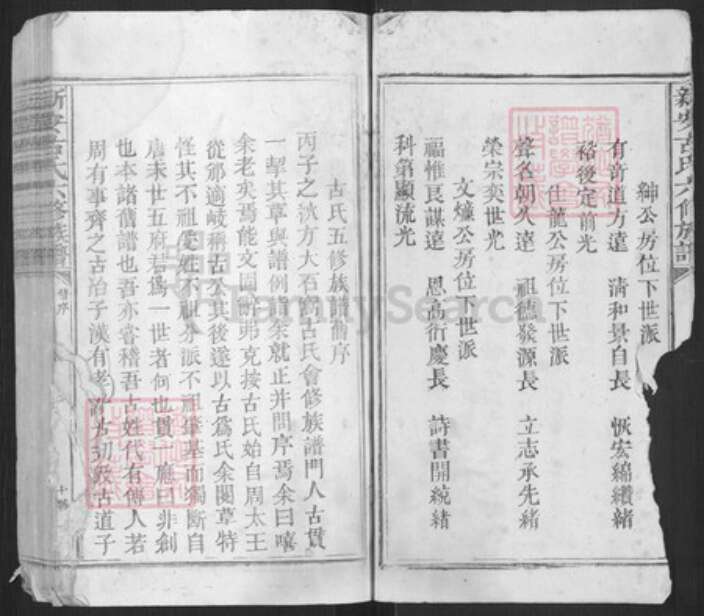 新安古氏六修族譜
紳公房位下世派
有音道方達 清和景自長 恢宏綿纘緒
裕後定前光
仕龍公房位下世派
聲名朝久達 祖德發源長 立志承先緒
榮宗奕世光
文爐公房位下世派
福惟良謀達 恩高衍慶長 詩書開統緒
科第顯流光
古氏五修族譜舊序
丙子之秋方大石窩古氏會修族譜門人古貫
一挈其草與譜例請余就正并問序焉余曰嘻
余老矣焉能文固辭弗克按古氏始自周太王
從邠適岐稱古公其後遂以古為氏余閱草特
怪其不祖受姓不祖分派不祖肇基而獨斷自
唐末世五府君為一世者何也貫一應曰非創
也本諸舊譜也吾亦嘗稽吾古姓代有傳人若
周有事齊之古冶子漢有孝 初 古道子
新安古氏六修族譜 舊序